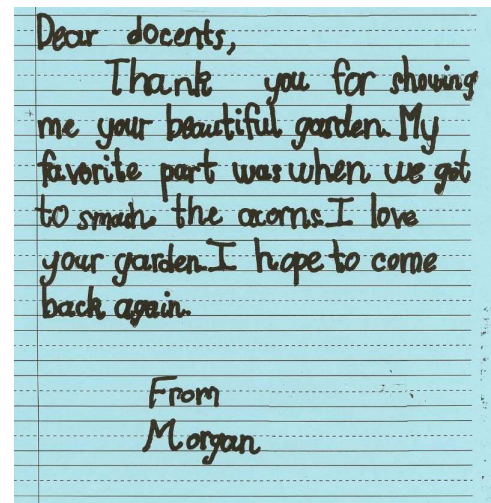 Dear docents,
Thank you for showing
me your beautiful garden. My
favorite part was when we got
to smash the acorns. I love
your garden. I hope to come
back again.
From
Morgan